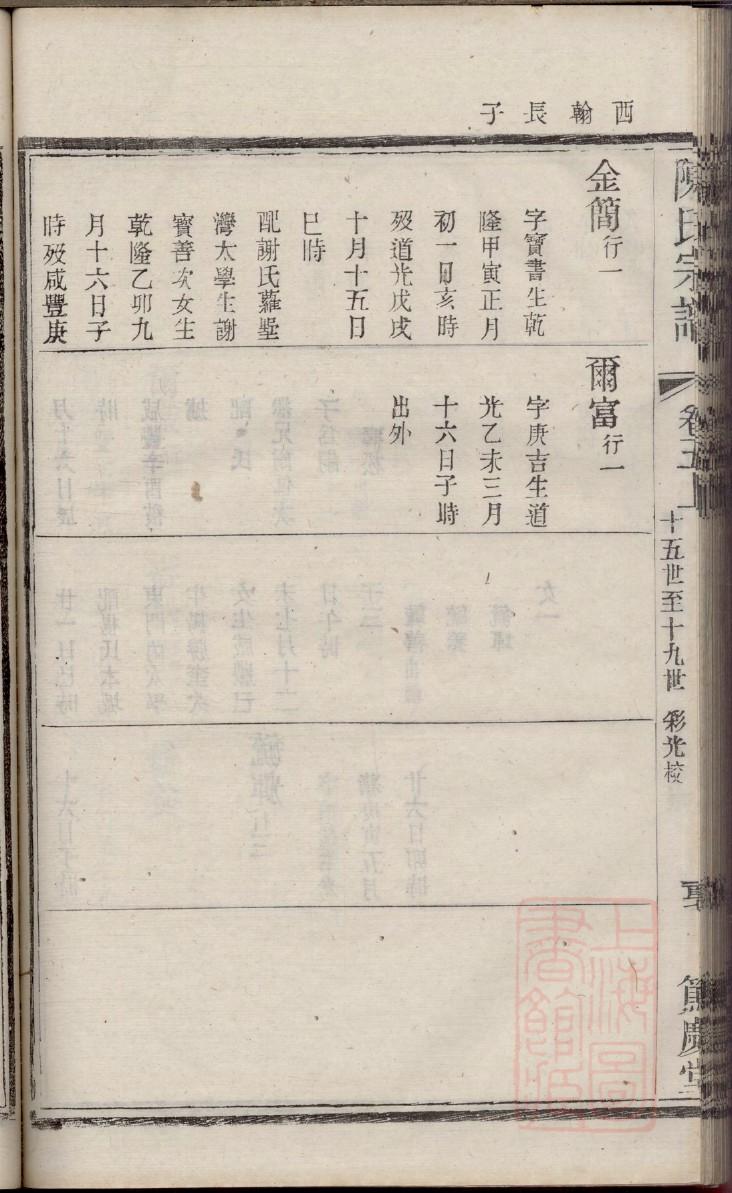 西翰長子
陳氏宗譜
卷五上
十五世至十九世 彩光校
篤慶堂
金簡行一
字寶書生乾
隆甲寅正月
初一日亥時
歿道光戊戌
十月十五日
巳時
配謝氏蘿墅
灣太學生謝
寶善次女生
乾隆乙卯九
月十六日子
時歿咸豐庚
爾富行一
字庚吉生道
光乙未三月
十六日子時
出外
上海圖
書館藏